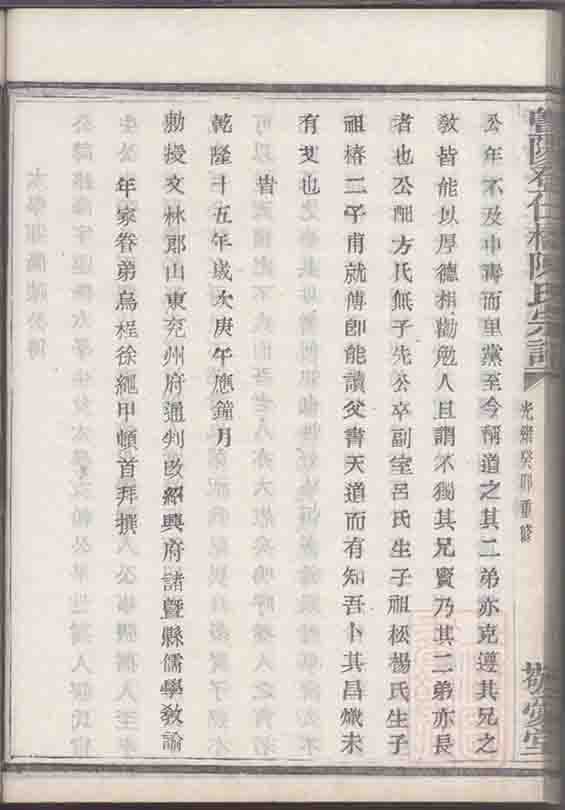 暨陽孝仁橋陳氏宗譜
光緒癸卯重修
敬安堂
公年不及中壽而里黨至今稱道之其二弟亦克遵其兄之
敎皆能以厚德相勸勉人且謂不獨其兄賢乃其二弟亦長
者也公配方氏無子先公卒副室呂氏生子祖松楊氏生子
祖椿二子甫就傅卽能讀父書天道而有知吾卜其昌熾未
有艾也
旹
乾隆十五年歲次庚午應鐘月
勅授文林郎山東兖州府通判改紹興府諸曁縣儒學敎諭
年家眷弟烏程徐繩甲頓首拜撰